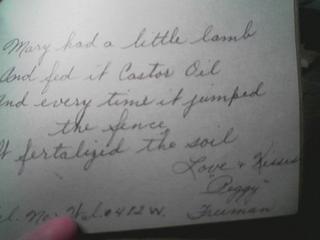 Mary had a little lamb
And fed it Castor Oil
And every time it jumped
the fence
It fertalized the soil
Love & Kisses
"Peggy"
Freeman